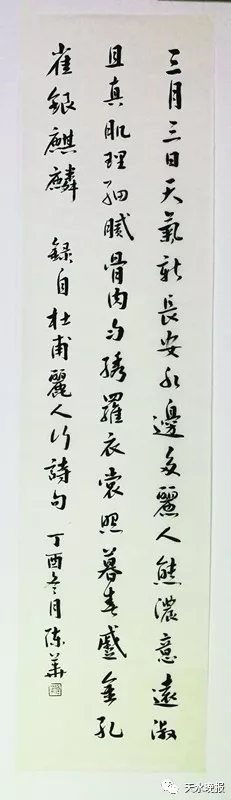 三月三日天氣新長安水邊多麗人態濃意遠淑
且真肌理細膩骨肉勻綉羅衣裳照暮春蹙金孔
雀銀麒麟 錄自杜甫麗人行詩句 丁酉冬月陳華
天水晚报